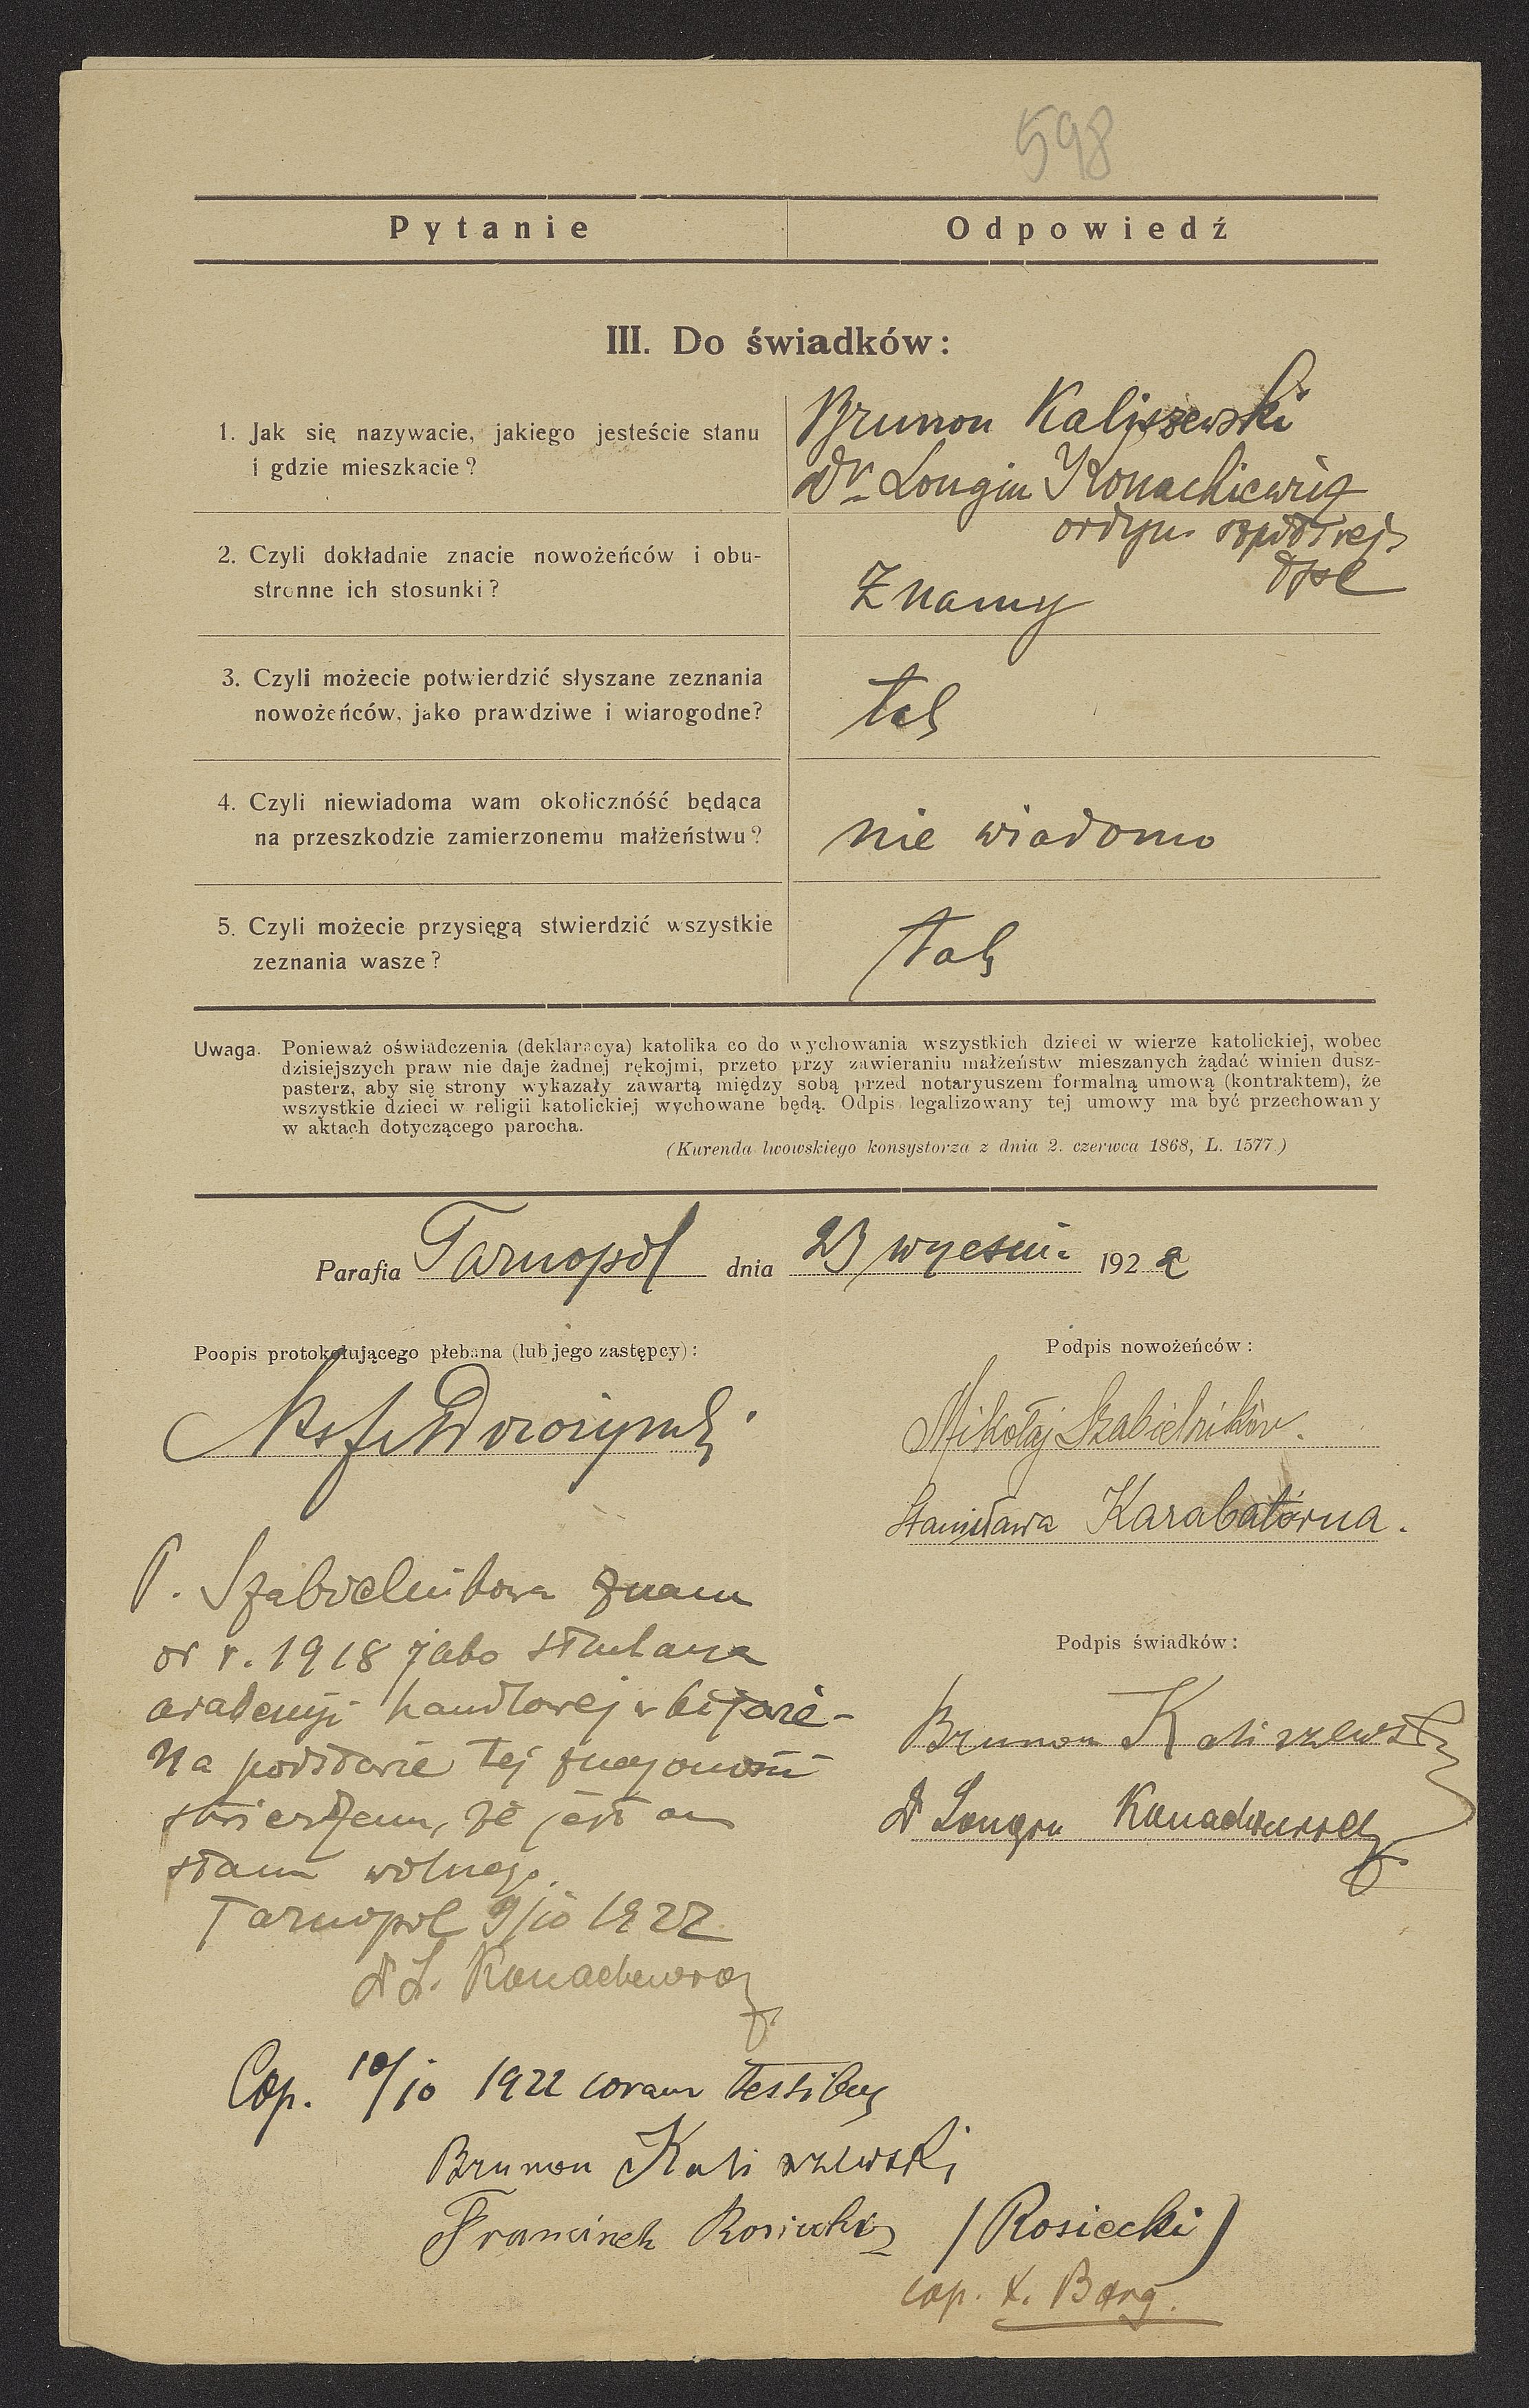 598
Pytanie Odpowiedź
III. Do świadków:
1. Jak się nazywacie, jakiego jesteście stanu
i gdzie mieszkacie?
Brunon Kaliszewski
Dr Longin Konachiewicz
ordyn.
2. Czyli dokładnie znacie nowożeńców i obu-
stronne ich stosunki?
Znamy
3. Czyli możecie potwierdzić słyszane zeznania
nowożeńców, jako prawdziwe i wiarogodne?
tak
4. Czyli niewiadoma wam okoliczność będąca
na przeszkodzie zamierzonemu małżeństwu?
nie wiadomo
5. Czyli możecie przysięgą stwierdzić wszystkie
zeznania wasze?
tak
Uwaga. Ponieważ oświadczenia (deklaracya) katolika co do wychowania wszystkich dzieci w wierze katolickiej, wobec
dzisiejszych praw nie daje żadnej rękojmi, przeto przy zawieraniu małżeństw mieszanych żądać winien dusz-
pasterz, aby się strony wykazały zawartą między sobą przed notaryuszem formalną umową (kontraktem), że
wszystkie dzieci w religii katolickiej wychowane będą. Odpis legalizowany tej umowy ma być przechowany
w aktach dotyczącego parocha.
(Kurenda lwowskiego konsystorza z dnia 2. czerwca 1868, L. 1577.)
Parafia Tarnopol dnia 23 wrześni. 1922
Poopis protokołującego plebana (lub jego zastępcy):
Podpis nowożeńców:
Mikołaj Szabielników.
Stanisława Karabatówna.
P. Szabielnikowa znam
od r. 1918 jako słuchacza
akademji handlowej w Kijowie-
Na podstawie tej znajomości
stwierdzam, że jest on
stanu wolnego.
Tarnopol 9/10 1922
Dr L. Konachiewicz
Podpis świadków:
Brunon Kaliszewski
Dr Longin Konachiewicz
Cop. 10/10 1922 coram testibus
Brunon Kaliszewski
Franciszek Rosiecki (Rosiecki)
cop. X. Barg.